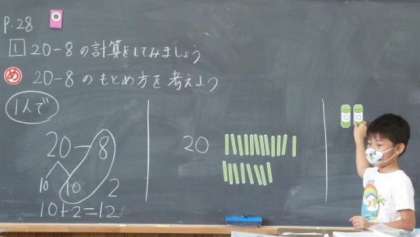 P.28
1 20-8の計算をしてみましょう
め 20-8のもとめ方を考えよう
1人で
20-8
10 10 2
10+2=12
20